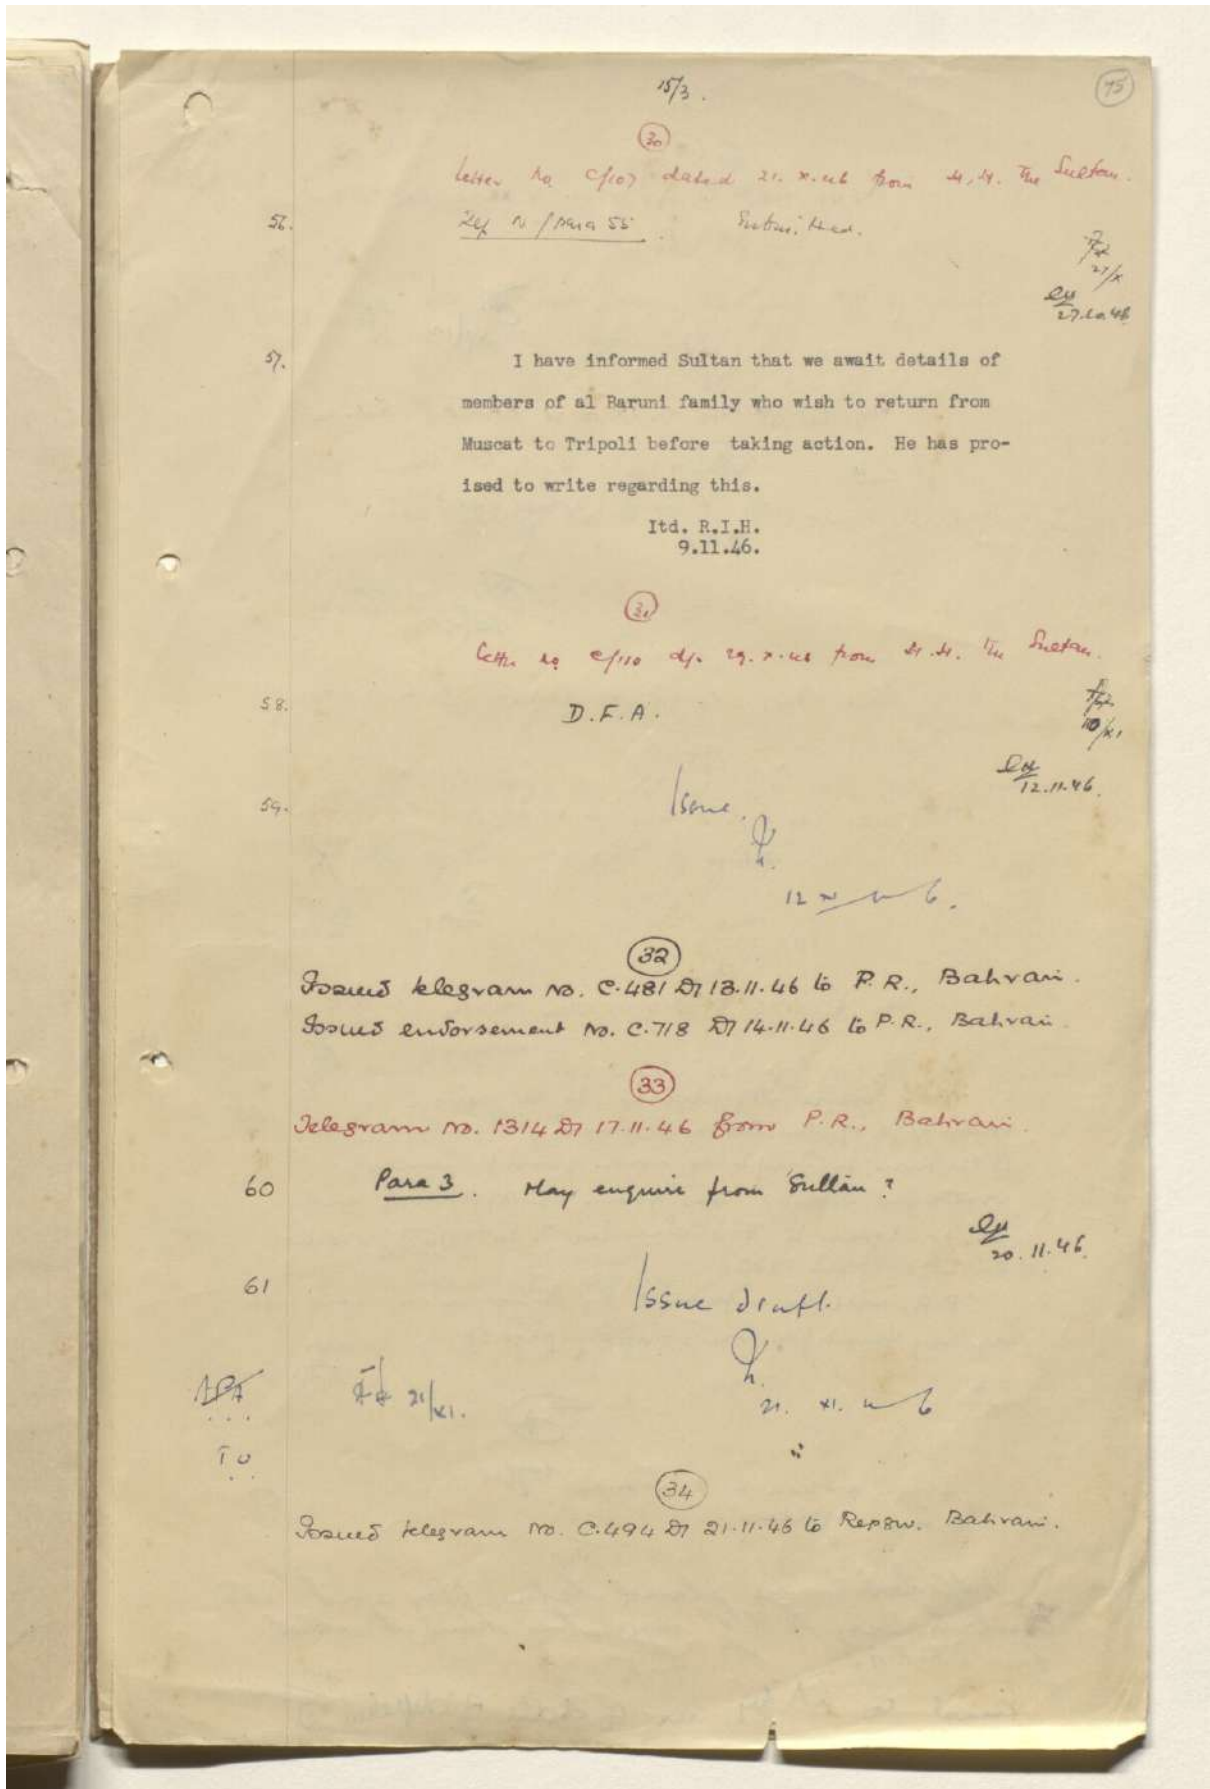 15/3.
75
30
Letter No C/107 dated 21.X.46 from H.H. The Sultan.
56.
Ref N/para 55. Submitted.
27/X
27.10.46
57.
I have informed Sultan that we await details of
members of al Baruni family who wish to return from
Muscat to Tripoli before taking action. He has pro-
ised to write regarding this.
Itd. R.I.H.
9.11.46.
31
Letter No C/110 d/- 29.X.46 from H.H. The Sultan.
58.
D.F.A.
10/XI
12.11.46.
59.
Issue.
12 XI 46.
32
Issued telegram No. C.481 Dt 13.11.46 to P.R., Bahrain.
Issued endorsement No. C.718 Dt 14.11.46 to P.R., Bahrain
33
Telegram No. 1314 Dt 17.11.46 from P.R., Bahrain.
60
Para 3. May enquire from Sultan?
20.11.46.
61
Issue draft.
21/XI.
21. XI. 46
34
Issued telegram No. C.494 Dt 21.11.46 to Repgu. Bahrain.